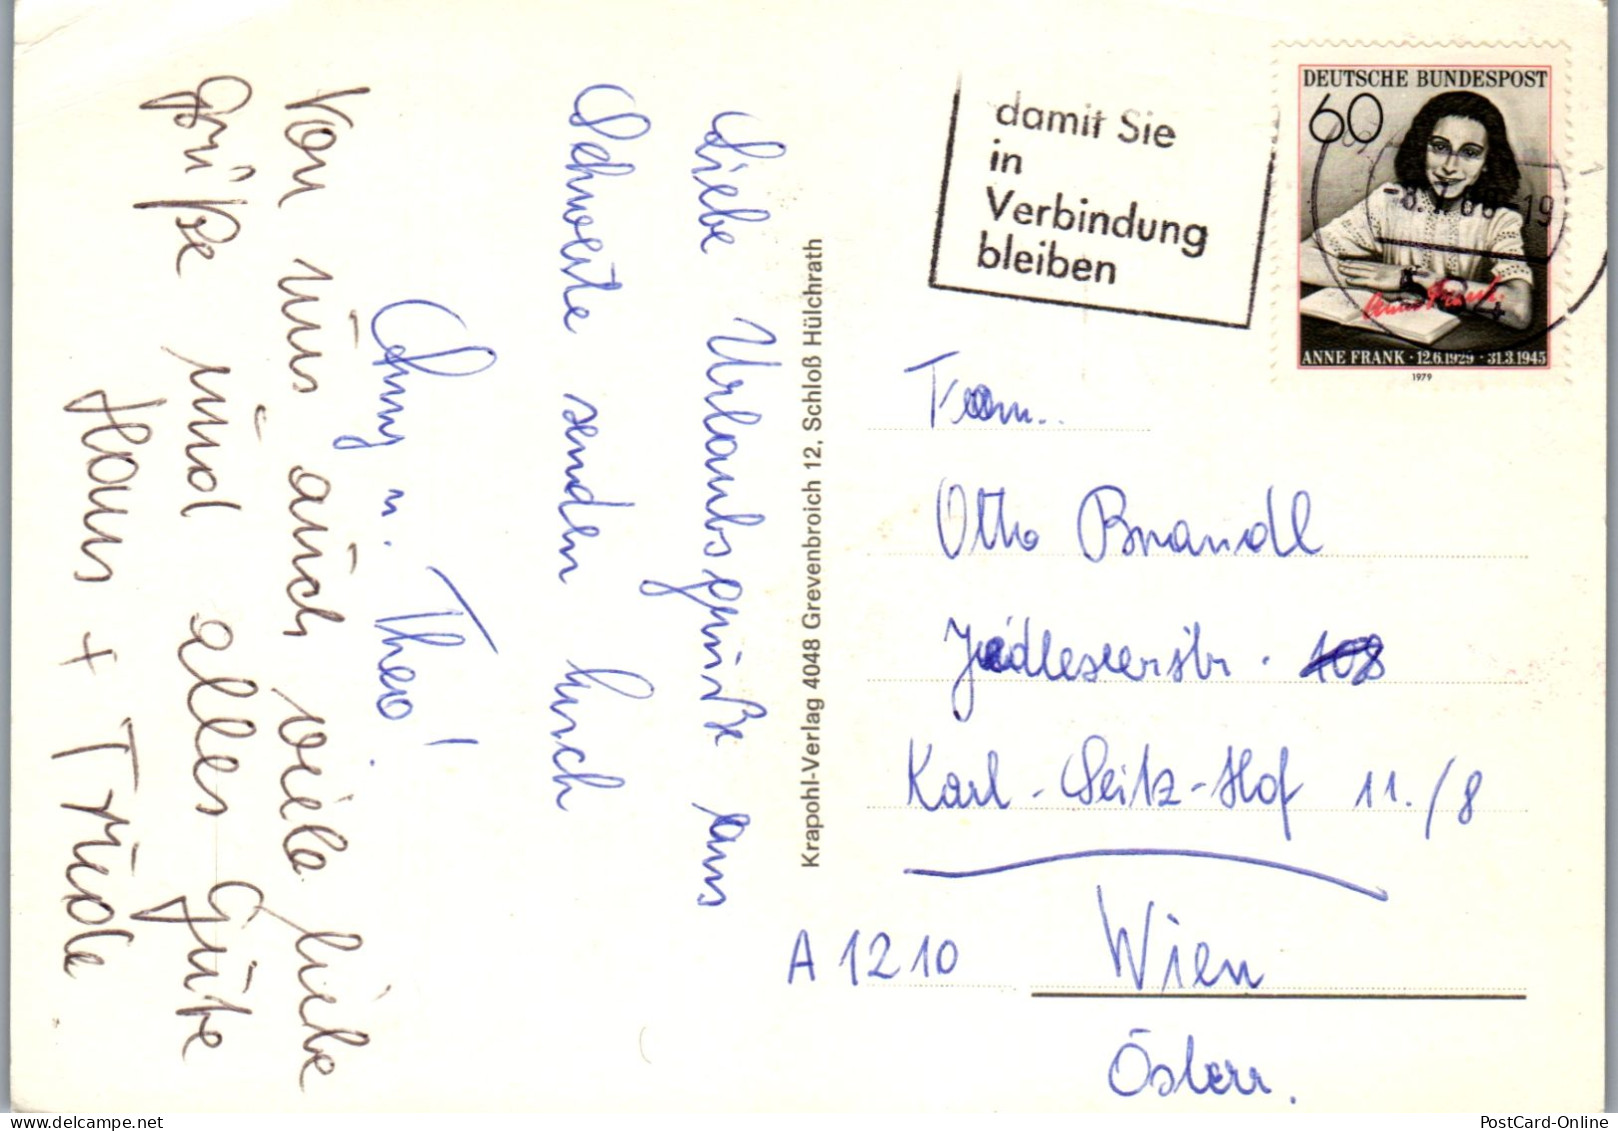 Liebe Urlaubsgrüße aus
Schwerte senden Euch
Anny u. Theo!
Von uns auch viele liebe
Grüße und alles Gute
Hans + Trude
Krapohl-Verlag 4048 Grevenbroich 12, Schloß Hülchrath
damit Sie
in
Verbindung
bleiben
DEUTSCHE BUNDESPOST
60
Anne Frank.
ANNE FRANK · 12.6.1929 · 31.3.1945
1979
Fam..
Otto Brandl
Jedleseerstr. 108
Karl-Seitz-Hof 11./8
A 1210 Wien
Österr.
PostCard-Online